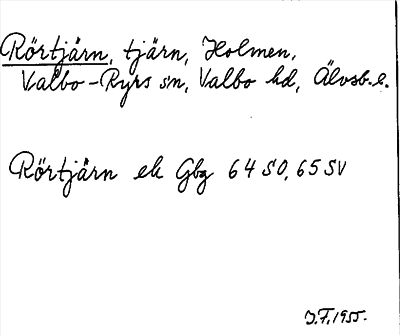 Rörtjärn, tjärn, Holmen,
Valbo-Ryrs sn, Valbo hd, Älvsb.l.
Rörtjärn ek Gbg 64 SO, 65 SV
J.F. 1955.